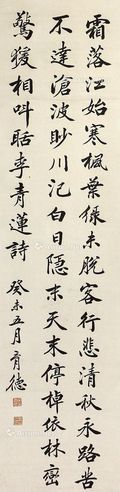 霜落江始寒楓葉緑未脱客行悲清秋永路苦
不達滄波眇川汜白日隱天末停棹依林巒
驚猨相叫聒李青蓮詩
癸未五月育德